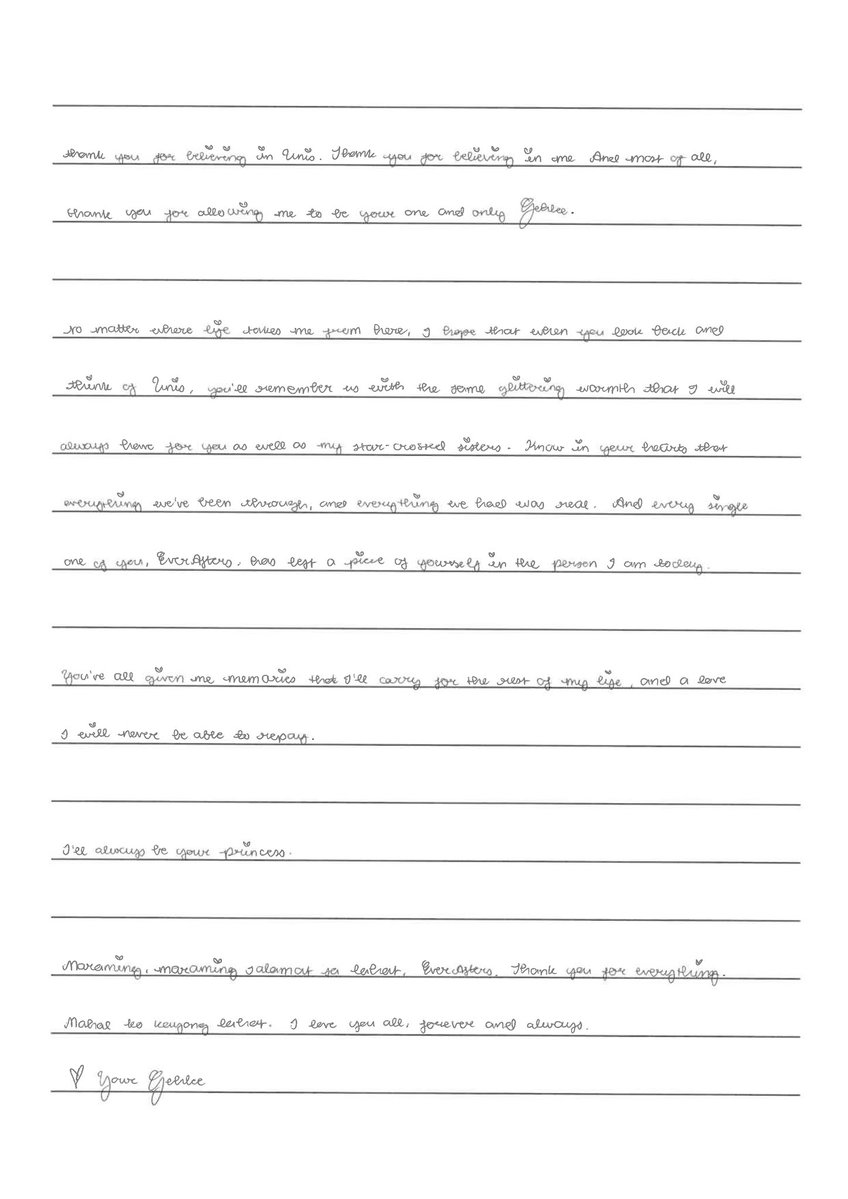 thank you for believing in Unis. Thank you for believing in me And most of all,
thank you for allowing me to be your one and only Gehlee.
No matter where life takes me from here, I hope that when you look back and
think of Unis, you'll remember us with the same glittering warmth that I will
always have for you as well as my star-crossed sisters. Know in your hearts that
everything we've been through, and everything we had was real. And every single
one of you, EverAfters, has left a piece of yourself in the person I am today.
You've all given me memories that I'll carry for the rest of my life, and a love
I will never be able to repay.
I'll always be your princess.
Maraming, maraming salamat sa lahat, EverAfters. Thank you for everything.
Mahal ko kayong lahat. I love you all, forever and always.
♡ Your Gehlee